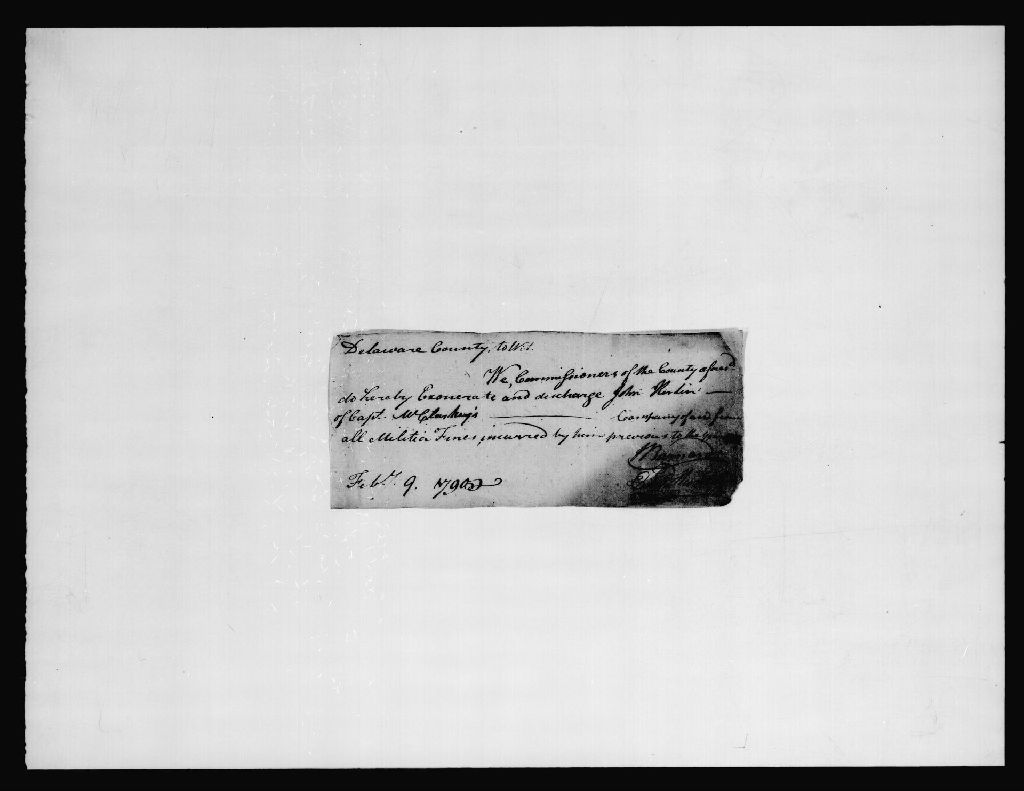 Delaware County, to Wit.
We, Commissioners of the County afores.d
do hereby Exonerate and discharge John
of Capt. McClaskey's Company of and from
all Militia Fines, incurred by him previous to the
Feb.ry 9. 1790